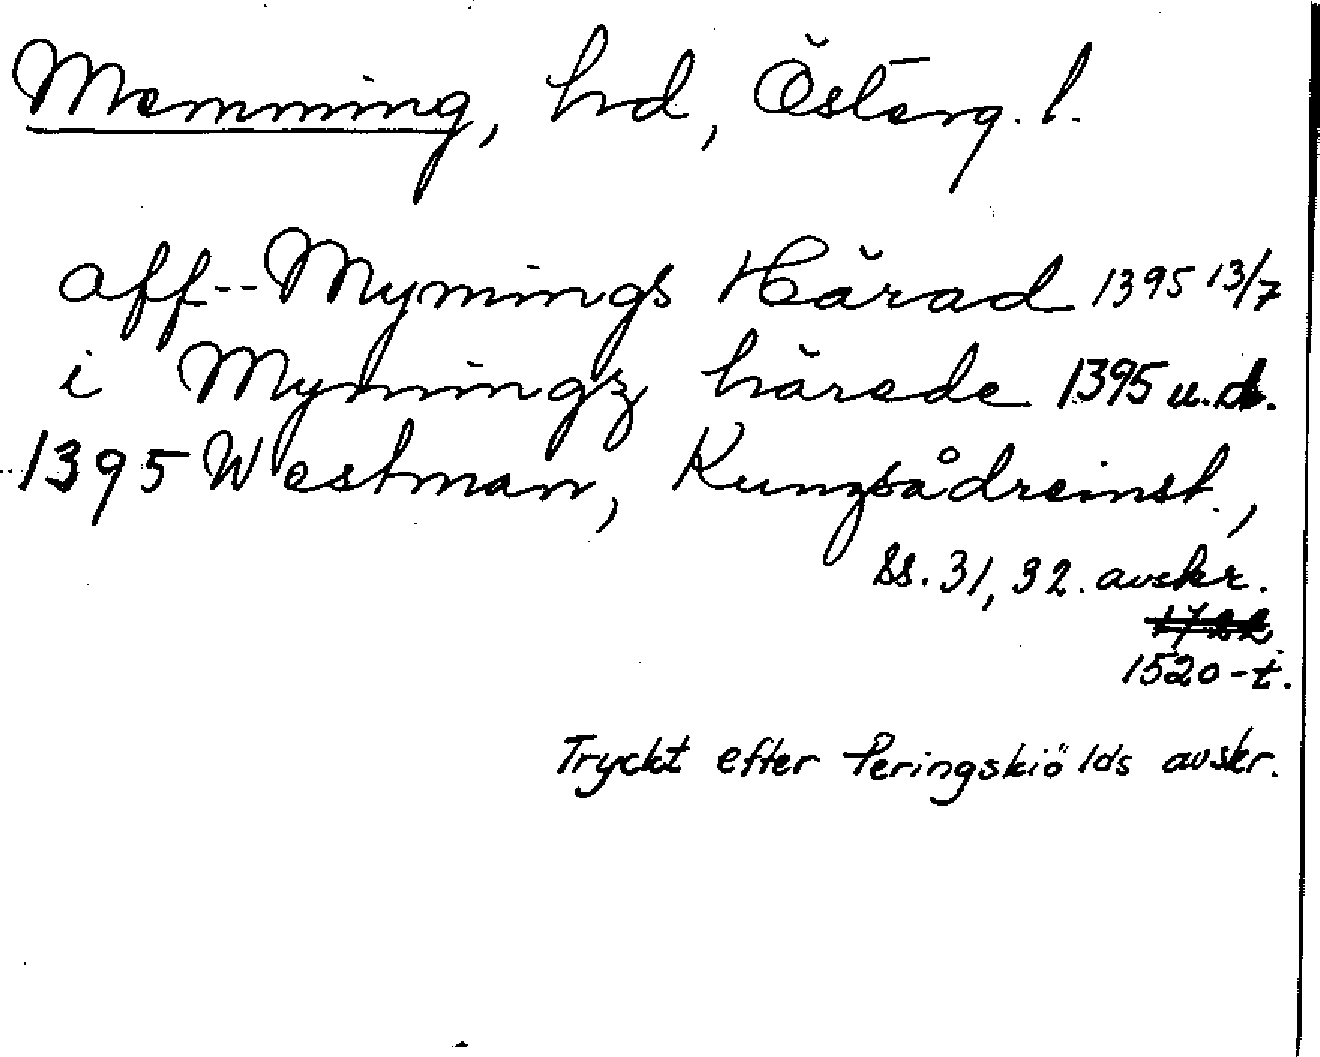 Memming, hd, Österg. l.
aff -- Mynings Härad 1395 13/7
i Myningz härede 1395 u.d.
1395 Westman, Kungsådreinst.,
ss. 31, 32. avskr.
1722
1520-t.
Tryckt efter Peringskiölds avskr.